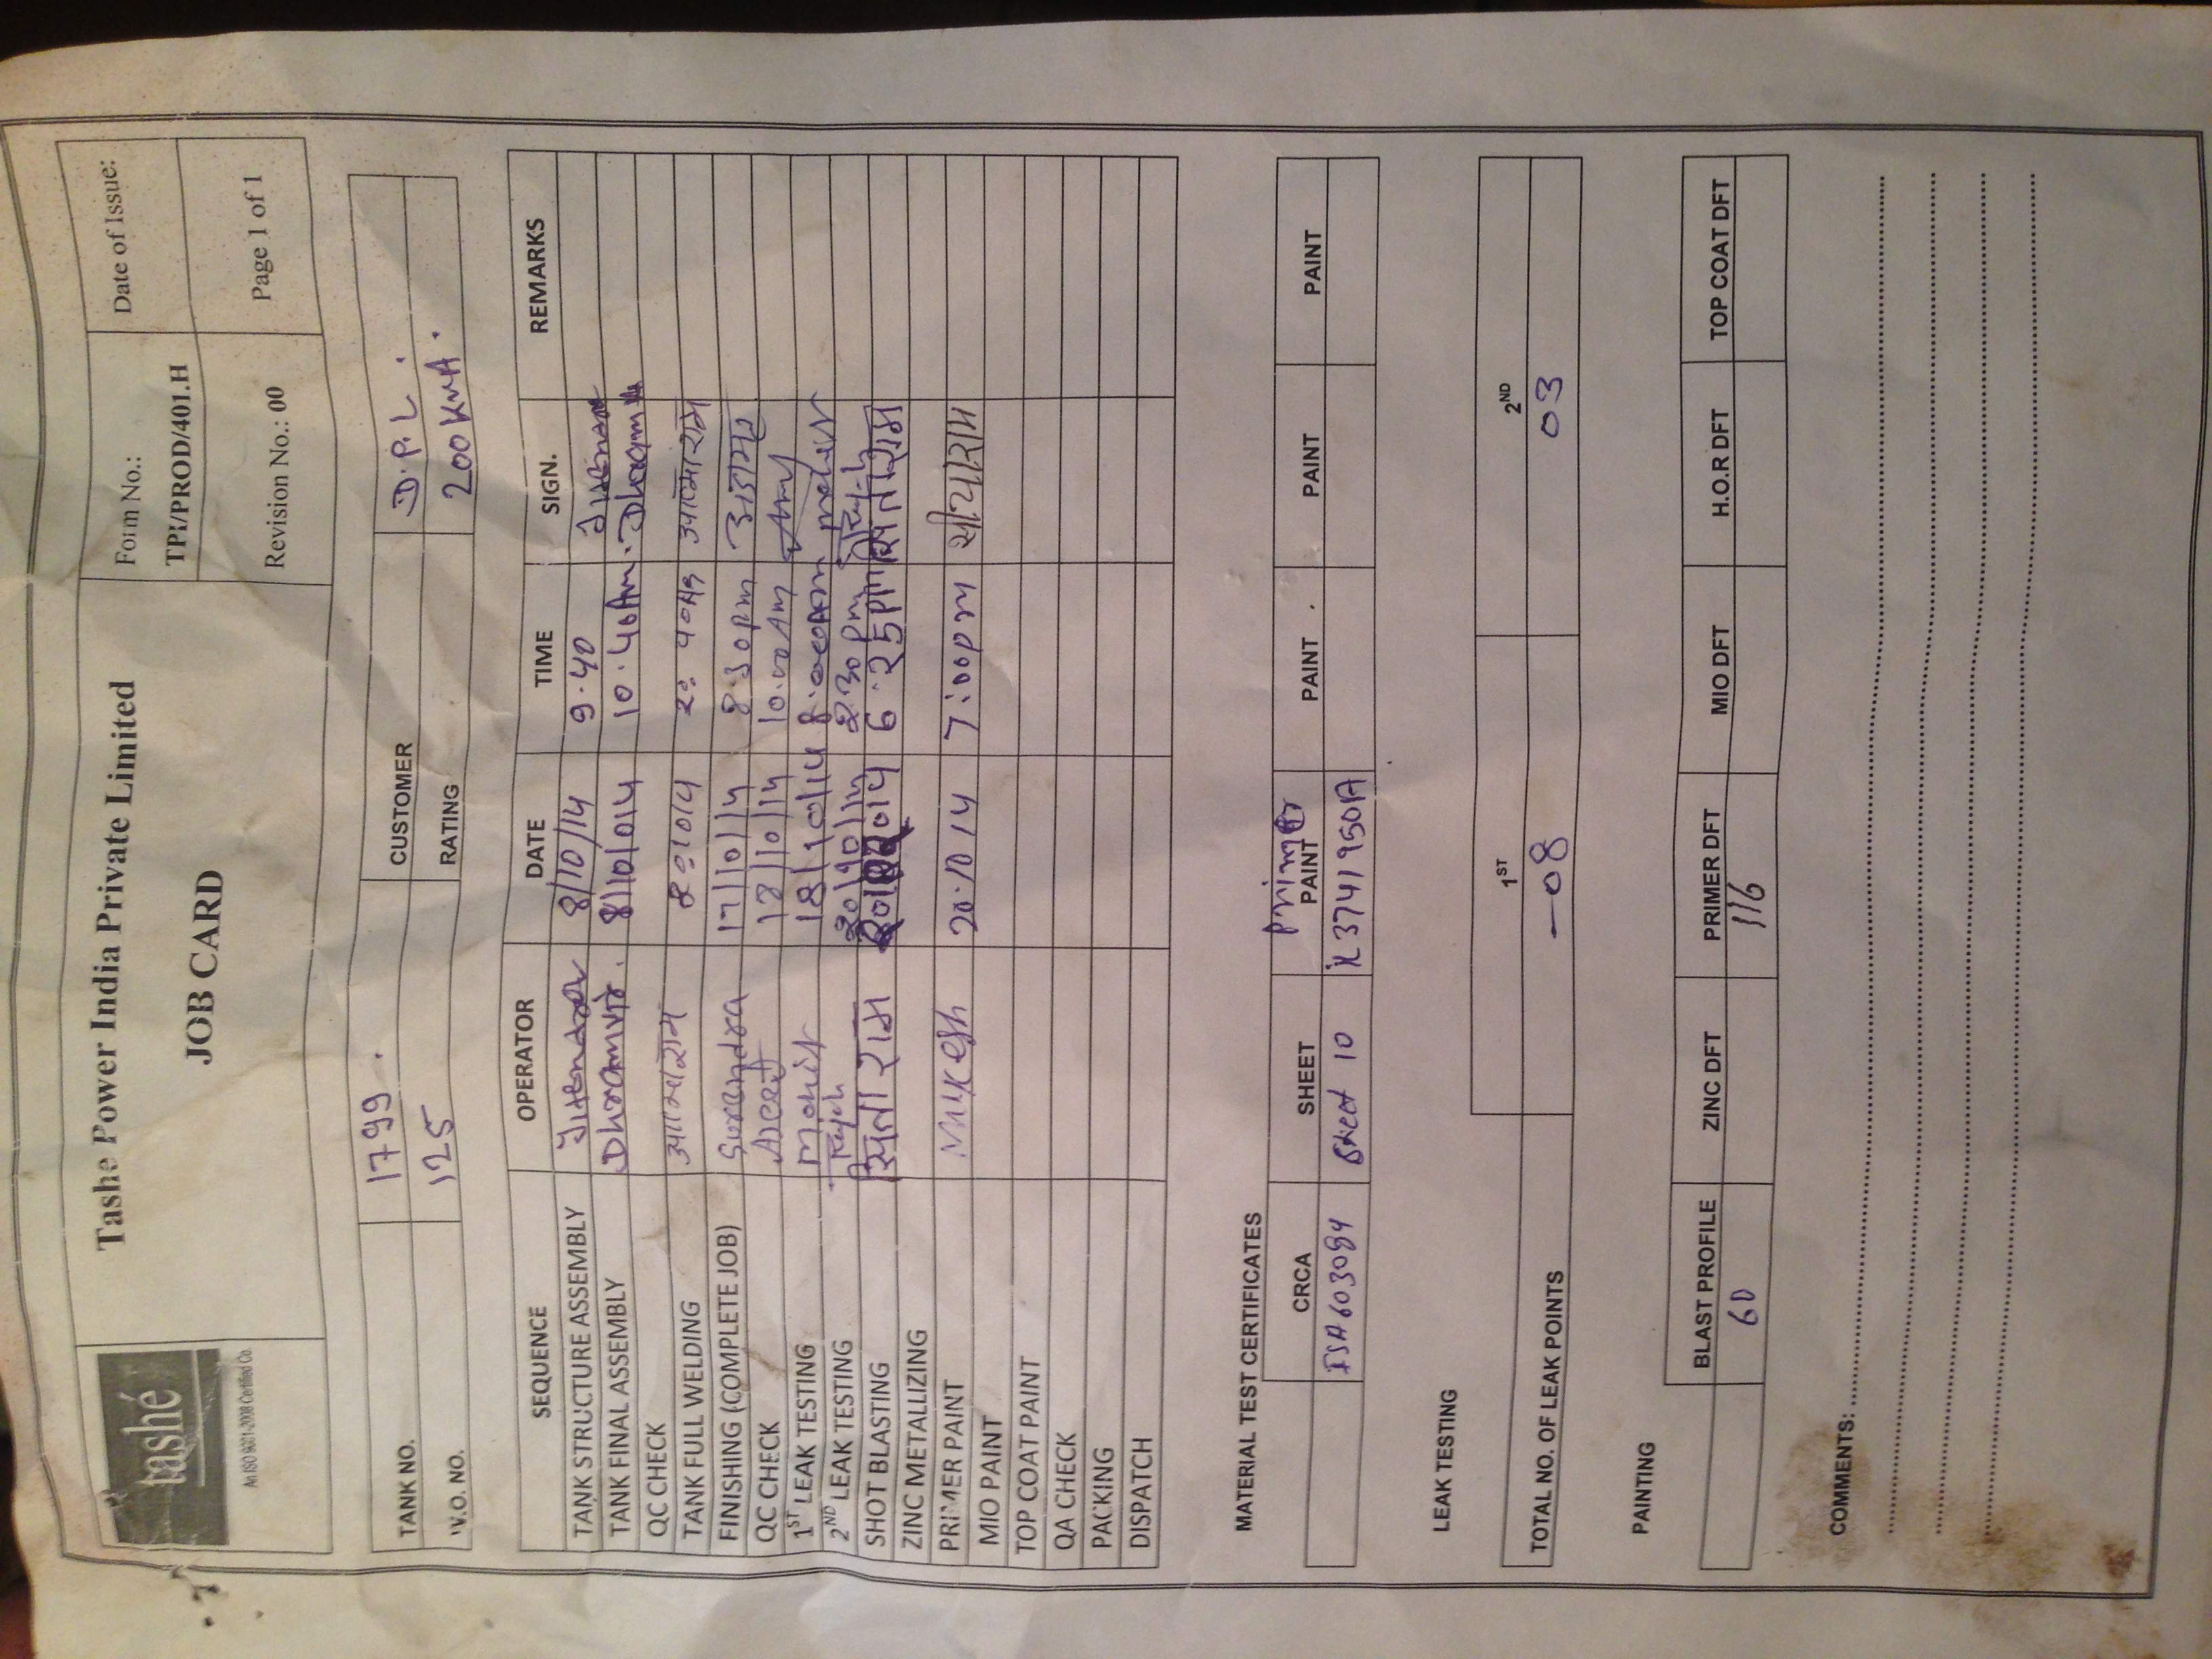 tashé
An ISO 9001-2008 Certified Co.
Tashe Power India Private Limited
JOB CARD
Form No.:
TPI/PROD/401.H
Date of Issue:
Revision No.: 00
Page 1 of 1
TANK NO. 1799. CUSTOMER D.P.L.
W.O. NO. 125 RATING 200 KVA.
SEQUENCE OPERATOR DATE TIME SIGN. REMARKS
TANK STRUCTURE ASSEMBLY Jitendra 8/10/14 9.40
TANK FINAL ASSEMBLY Dhramvir. 8/10/014 10.40 Am.
QC CHECK
TANK FULL WELDING आत्माराम आत्माराम
FINISHING (COMPLETE JOB) Surendra 17/10/14 8:30 pm
QC CHECK 18/10/14 10:00 AM
1ST LEAK TESTING Mohit 18/10/14 8:00 Am Mohit
2ND LEAK TESTING 20/10/14 2:30 pm
SHOT BLASTING सिताराम 6.25 Pm सिताराम
ZINC METALLIZING
PRIMER PAINT Mukesh 20.10 14 7:00 pm सीयाराम
MIO PAINT
TOP COAT PAINT
QA CHECK
PACKING
DISPATCH
MATERIAL TEST CERTIFICATES
Primer
CRCA SHEET PAINT PAINT PAINT PAINT
ISA603084 Sheet 10 3741950A
LEAK TESTING
1ST 2ND
TOTAL NO. OF LEAK POINTS –08 03
PAINTING
BLAST PROFILE ZINC DFT PRIMER DFT MIO DFT H.O.R DFT TOP COAT DFT
60 116
COMMENTS: